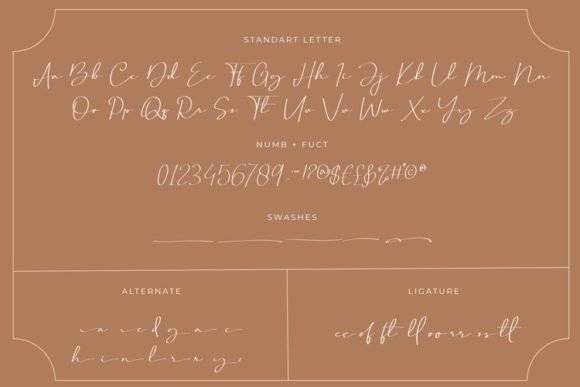 STANDART LETTER
Aa Bb Cc Dd Ee Ff Gg Hh Ii Jj Kk Ll Mm Nn
Oo Pp Qq Rr Ss Tt Uu Vv Ww Xx Yy Zz
NUMB + FUCT
0123456789 !?@$€£%#©®
SWASHES
ALTERNATE
a e d g n c
h i n d r r y
LIGATURE
ee of ft ll oo rr ss tt